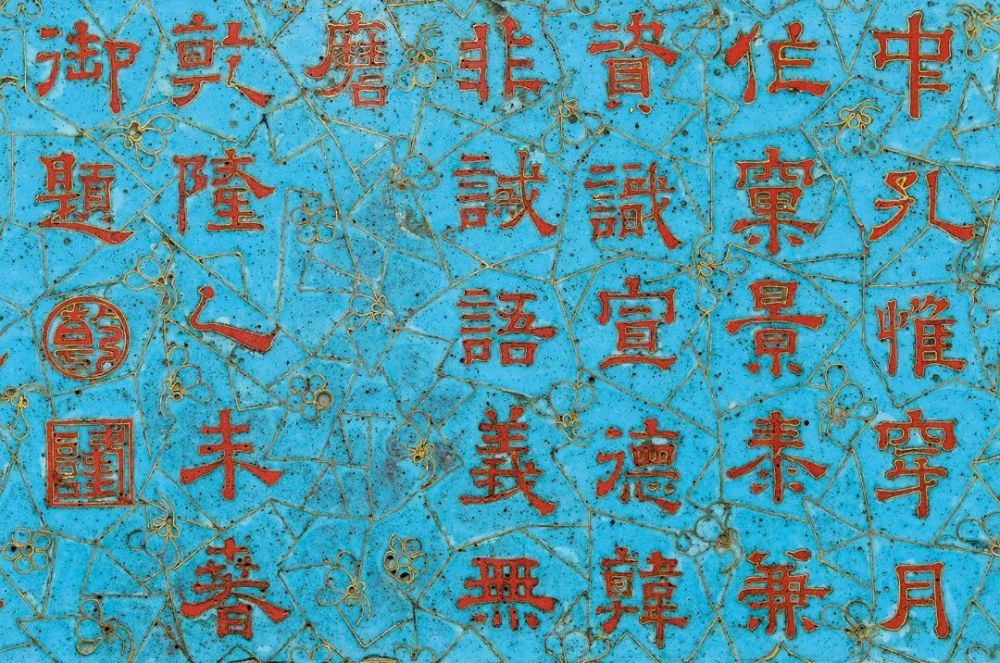 中孔惟穿月
窠景泰兼
資識宣德韓
非誡語義無
磨
乾隆乙未春
御題